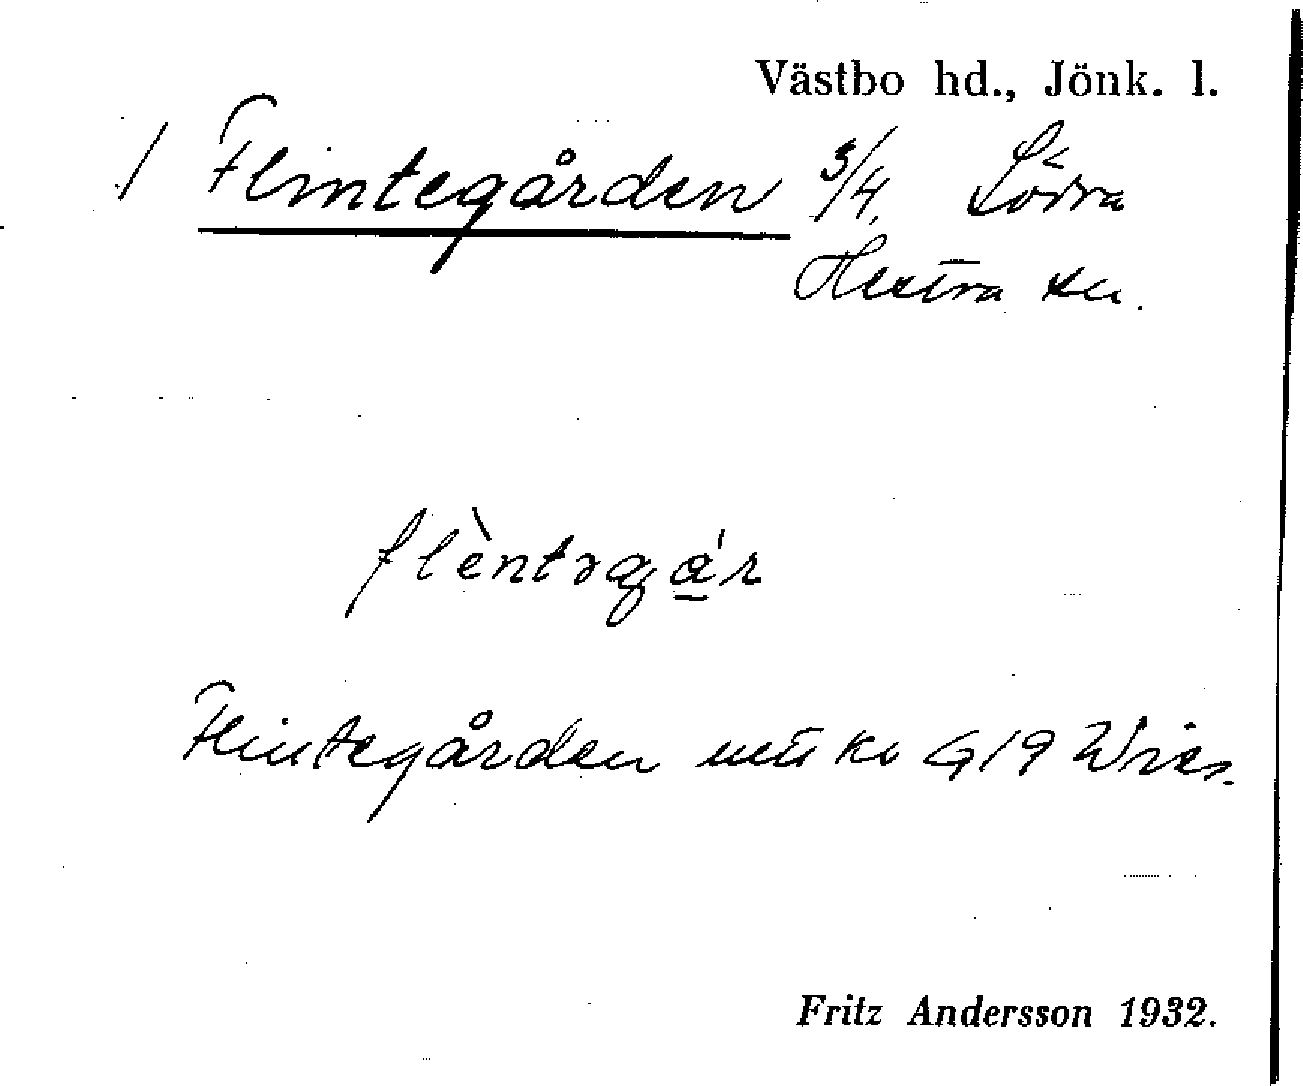 Västbo hd., Jönk. l.
/ Flintegården 3/4, Södra
Hestra sn.
flèntəgár
Flintegården
Fritz Andersson 1932.